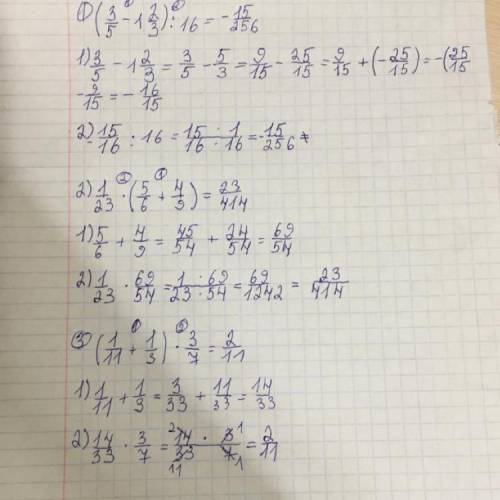 ① (3/5 - 1 2/3) : 16 = -15/256
1) 3/5 - 1 2/3 = 3/5 - 5/3 = 9/15 - 25/15 = 9/15 + (-25/15) = -(25/15
- 9/15 = -16/15
2) -15/16 : 16 = 15 · 1/16 · 16 = -15/256
2) 1/23 · (5/6 + 4/9) = 23/414
1) 5/6 + 4/9 = 45/54 + 24/54 = 69/54
2) 1/23 · 69/54 = 1 · 69/23 · 54 = 69/1242 = 23/414
③ (1/11 + 1/3) · 3/7 = 2/11
1) 1/11 + 1/3 = 3/33 + 11/33 = 14/33
2) 14/33 · 3/7 = 14 · 3/33 · 7 = 2/11